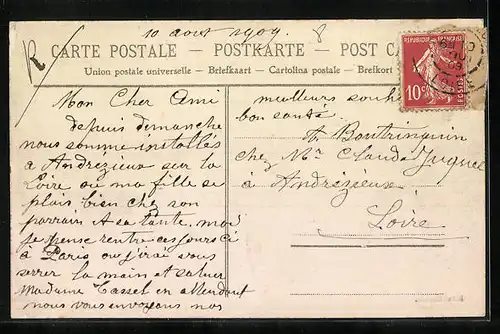 10 août 1909
R
8
CARTE POSTALE – POSTKARTE – POST CA
Union postale universelle – Briefkaart – Cartolina postale – Brefkort
REPUBLIQUE FRANCAISE
10c
POSTES
Mon Cher Ami
depuis dimanche
nous somme installés
à Andrezieux sur la
Loire ou ma fille se
plait bien chez son
parrain et sa tante, moi
je pense rentre ces jours ci
à Paris ou j'irai vous
serrer la main et saluer
Madame Tassel en attendant
nous vous envoyons nos
meilleurs souh
bon santé.
chez Mr Claude
à Andrézieux
Loire